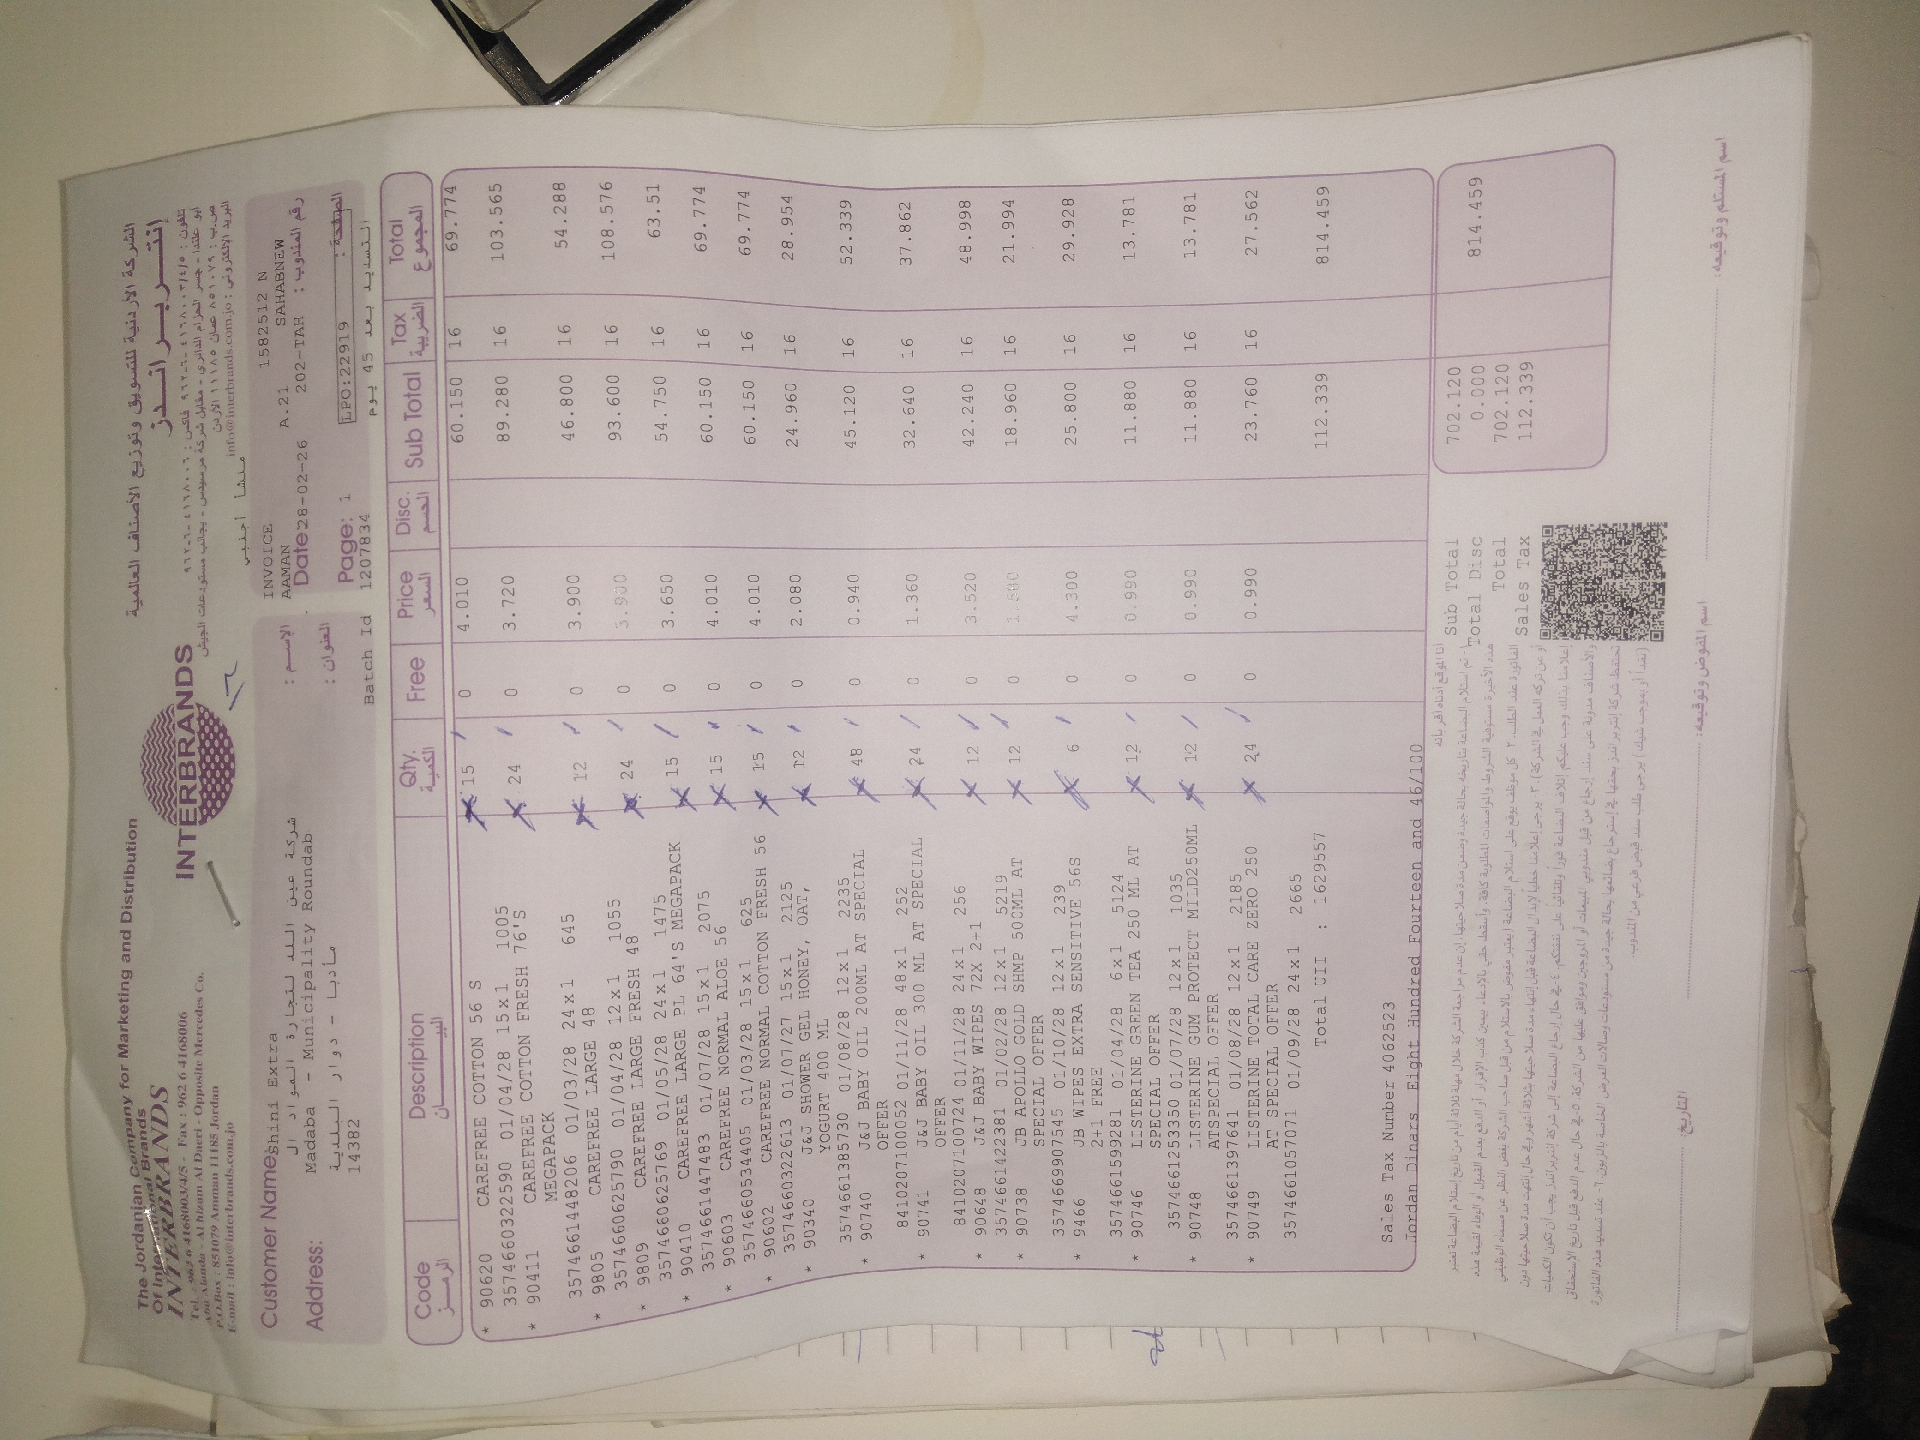 The Jordanian Company for Marketing and Distribution
Of International Brands
INTERBRANDS
Tel. : 962 6 4168003/4/5 - Fax : 962 6 4168006
Abu Alanda - Al hizam Al Daeri - Opposite Mercedes Co.
P.O.Box : 851079 Amman 11185 Jordan
E-mail : info@interbrands.com.jo
INTERBRANDS
الشركة الأردنية للتسويق وتوزيع الأصناف العالمية
إنتربراندز
تلفون : ٩٦٢-٦-٤١٦٨٠٠٣/٤/٥ فاكس : ٩٦٢-٦-٤١٦٨٠٠٦
أبو علندا - جسر الحزام الدائري - مقابل شركة مرسيدس - بجانب مستودعات الجيش
ص.ب : ٨٥١٠٧٩ عمان ١١١٨٥ الأردن
البريد الإلكتروني : info@interbrands.com.jo
منشأ اجنبي
Customer Name: Shini Extra
شركة عين الله لتجارة المواد ال
الإسم :
Address: Madaba - Municipality Roundab
العنوان :
مادبا - دوار البلدية
14382
INVOICE 1582512 N
AAMAN A.21 SAHABNEW
Date: 28-02-26 202-TAR رقم المندوب :
Page: 1 LPO:22919 الصفحة :
Batch Id 1207834 التسديد بعد 45 يوم
Code Description Qty. Free Price Disc. Sub Total Tax Total
الرمز البيان الكمية السعر الحسم الضريبة المجموع
* 90620 CAREFREE COTTON 56 S 15 0 4.010 60.150 16 69.774
3574660322590 01/04/28 15x1 1005
* 90411 CAREFREE COTTON FRESH 76'S 24 0 3.720 89.280 16 103.565
MEGAPACK
3574661448206 01/03/28 24x1 645
* 9805 CAREFREE LARGE 48 12 0 3.900 46.800 16 54.288
3574660625790 01/04/28 12x1 1055
* 9809 CAREFREE LARGE FRESH 48 24 0 3.900 93.600 16 108.576
3574660625769 01/05/28 24x1 1475
* 90410 CAREFREE LARGE PL 64'S MEGAPACK 15 0 3.650 54.750 16 63.51
3574661447483 01/07/28 15x1 2075
* 90603 CAREFREE NORMAL ALOE 56 15 0 4.010 60.150 16 69.774
3574660534405 01/03/28 15x1 625
* 90602 CAREFREE NORMAL COTTON FRESH 56 15 0 4.010 60.150 16 69.774
3574660322613 01/07/27 15x1 2125
* 90340 J&J SHOWER GEL HONEY, OAT, 12 0 2.080 24.960 16 28.954
YOGURT 400 ML
3574661385730 01/08/28 12x1 2235
* 90740 J&J BABY OIL 200ML AT SPECIAL 48 0 0.940 45.120 16 52.339
OFFER
8410207100052 01/11/28 48x1 252
* 90741 J&J BABY OIL 300 ML AT SPECIAL 24 0 1.360 32.640 16 37.862
OFFER
8410207100724 01/11/28 24x1 256
* 90648 J&J BABY WIPES 72X 2+1 12 0 3.520 42.240 16 48.998
3574661422381 01/02/28 12x1 5219
* 90738 JB APOLLO GOLD SHMP 500ML AT 12 0 18.960 16 21.994
SPECIAL OFFER
3574669907545 01/10/28 12x1 239
* 9466 JB WIPES EXTRA SENSITIVE 56S 6 0 4.300 25.800 16 29.928
2+1 FREE
3574661599281 01/04/28 6x1 5124
* 90746 LISTERINE GREEN TEA 250 ML AT 12 0 0.990 11.880 16 13.781
SPECIAL OFFER
3574661253350 01/07/28 12x1 1035
* 90748 LISTERINE GUM PROTECT MILD250ML 12 0 0.990 11.880 16 13.781
ATSPECIAL OFFER
3574661397641 01/08/28 12x1 2185
* 90749 LISTERINE TOTAL CARE ZERO 250 24 0 0.990 23.760 16 27.562
AT SPECIAL OFFER
3574661057071 01/09/28 24x1 2665
Total CII : 1629557 112.339 814.459
Sales Tax Number 4062523
Jordan Dinars Eight Hundred Fourteen and 46/100
Sub Total 702.120
Total Disc 0.000
Total 702.120 814.459
Sales Tax 112.339
أنا الموقع أدناه أقر بأنه
التاريخ:
اسم المفوض وتوقيعه:
اسم المستلم وتوقيعه: